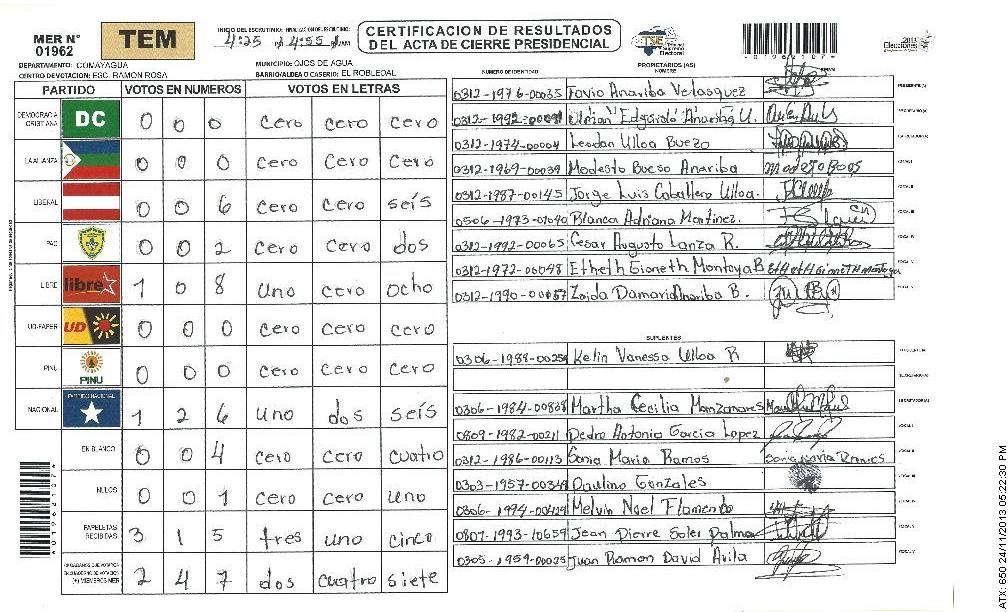 MER N° 01962
TEM
INICIO DEL ESCRUTINIO: 4:25 FINALIZACION DEL ESCRUTINIO: 4:55
CERTIFICACION DE RESULTADOS
DEL ACTA DE CIERRE PRESIDENCIAL
TSE Tribunal Supremo Electoral
2013 Elecciones
DEPARTAMENTO: COMAYAGUA
MUNICIPIO: OJOS DE AGUA
CENTRO DE VOTACION: ESC. RAMON ROSA
BARRIO/ALDEA O CASERIO: EL ROBLEDAL
PARTIDO VOTOS EN NUMEROS VOTOS EN LETRAS
DEMOCRACIA CRISTIANA DC 0 0 0 cero cero cero
LA ALIANZA 0 0 0 cero cero cero
LIBERAL 0 0 6 cero cero seís
PAC 0 0 2 cero cero dos
LIBRE libre 1 0 8 uno cero ocho
UD-FAPER UD 0 0 0 cero cero cero
PINU PINU 0 0 0 cero cero cero
NACIONAL PARTIDO NACIONAL 1 2 6 uno dos seís
EN BLANCO 0 0 4 cero cero cuatro
NULOS 0 0 1 cero cero uno
PAPELETAS RECIBIDAS 3 1 5 tres uno cinco
CIUDADANOS QUE VOTARON EN CUADERNO DE VOTACION (+) MIEMBROS MER 2 4 7 dos cuatro siete
NUMERO DE IDENTIDAD PROPIETARIOS (AS) NOMBRE FIRMA
0312-1976-00035 Favio Anariba Velasquez
0312-1992- Edgardo Anariba U.
0312-1974-00004 Leodan Ulloa Buezo
0312-1969-00039 Modesto Bueso Anariba
0312-1987-00145 Jorge Luis Caballero Ulloa.
0506-1973-01040 Blanca Adriana Martinez.
0312-1992-00065 Cesar Augusto Lanza R.
0312-1972-00048 Etheth Gioneth Montoya B
0312-1990-00057 Zoida Damaris Anariba B.
SUPLENTES
0306-1988-00259 Kelin Vanessa Ulloa R
0306-1984-00838 Martha Cecilia Manzanares
0809-1982-00211 Pedro Antonio Garcia Lopez
0312-1986-00113 Sonia Maria Ramos Sonia Maria Ramos
0303-1957-00349 Paulino Gonzales
0306-1994-00424 Melvin Noel Flamenco
0807-1993-10659 Jean Pierre Soler Palma
0305-1959-00025 Juan Ramon David Avila
ATX: 650 24/11/2013 05:22:30 PM